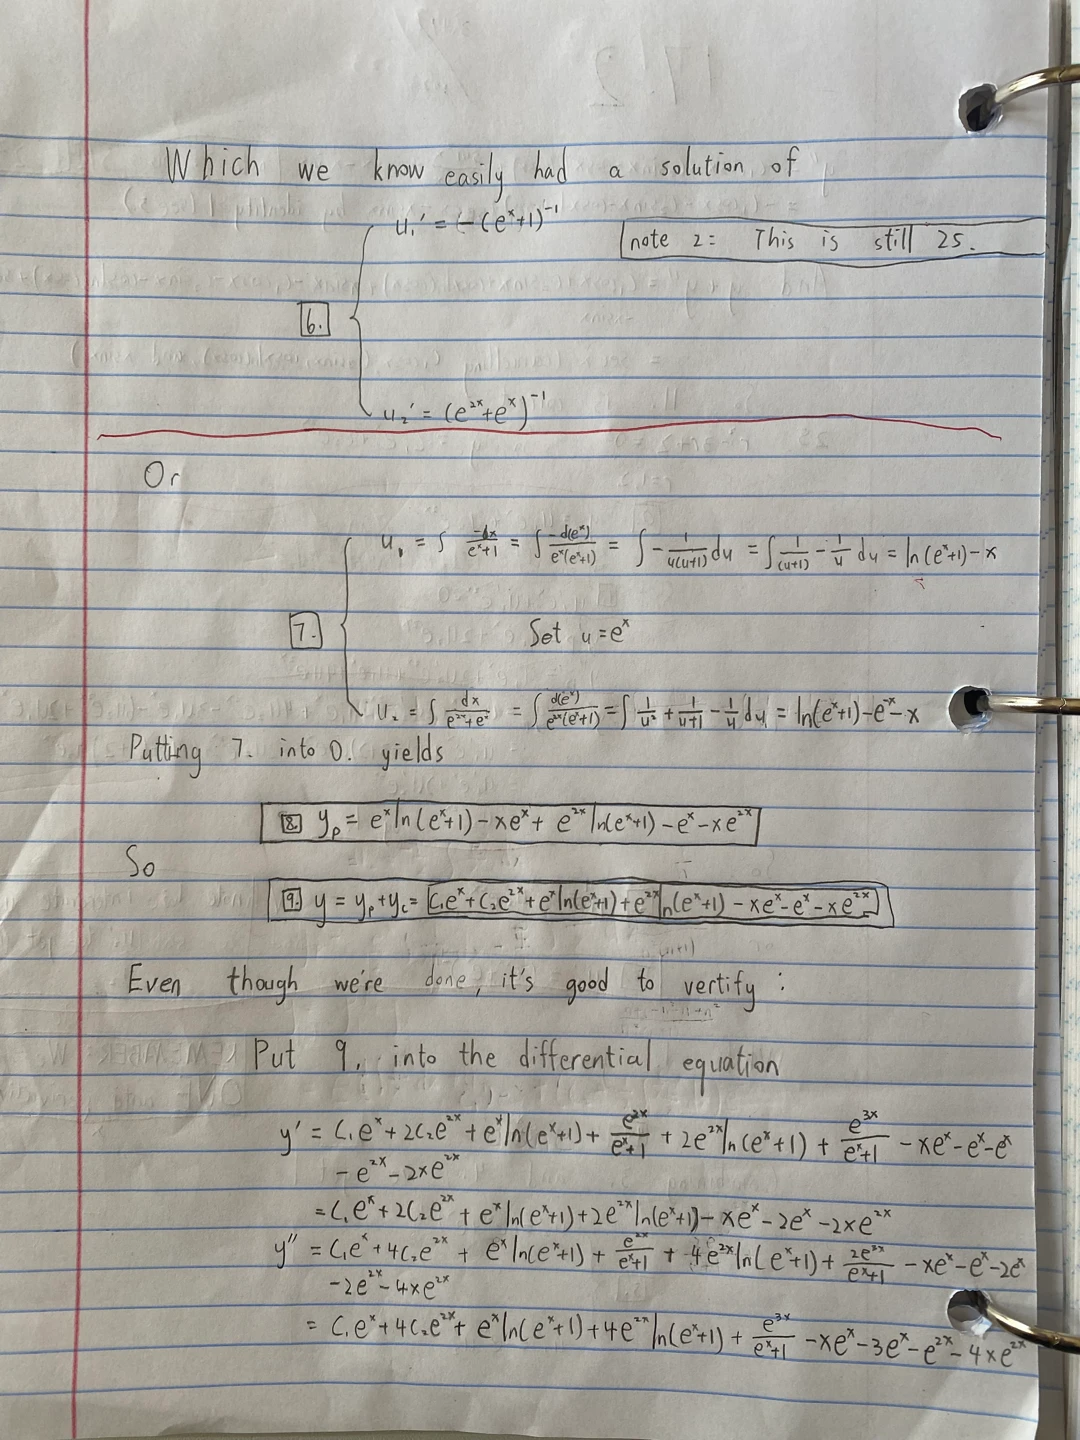 Which we know easily had a solution of
u₁' = -(eˣ+1)⁻¹
note 2: This is still 25.
6.
u₂' = (e²ˣ+eˣ)⁻¹
Or
u₁ = ∫ -dx/(eˣ+1) = ∫ -d(eˣ)/(eˣ(eˣ+1)) = ∫ - 1/(u(u+1)) du = ∫ 1/(u+1) - 1/u du = ln(eˣ+1) - x
7. Set u = eˣ
u₂ = ∫ dx/(e²ˣ+eˣ) = ∫ d(eˣ)/(e²ˣ(eˣ+1)) = ∫ 1/u² + 1/(u+1) - 1/u du = ln(eˣ+1) - e⁻ˣ - x
Putting 7. into 0. yields
8. yₚ = eˣ ln(eˣ+1) - xeˣ + e²ˣ ln(eˣ+1) - eˣ - xe²ˣ
So
9. y = yₚ + y_c = C₁eˣ + C₂e²ˣ + eˣ ln(eˣ+1) + e²ˣ ln(eˣ+1) - xeˣ - eˣ - xe²ˣ
Even though we're done, it's good to vertify :
Put 9. into the differential equation
y' = C₁eˣ + 2C₂e²ˣ + eˣ ln(eˣ+1) + e²ˣ/(eˣ+1) + 2e²ˣ ln(eˣ+1) + e³ˣ/(eˣ+1) - xeˣ - eˣ - eˣ
- e²ˣ - 2xe²ˣ
= C₁eˣ + 2C₂e²ˣ + eˣ ln(eˣ+1) + 2e²ˣ ln(eˣ+1) - xeˣ - 2eˣ - 2xe²ˣ
y'' = C₁eˣ + 4C₂e²ˣ + eˣ ln(eˣ+1) + e²ˣ/(eˣ+1) + 4e²ˣ ln(eˣ+1) + 2e³ˣ/(eˣ+1) - xeˣ - eˣ - 2eˣ
- 2e²ˣ - 4xe²ˣ
= C₁eˣ + 4C₂e²ˣ + eˣ ln(eˣ+1) + 4e²ˣ ln(eˣ+1) + e³ˣ/(eˣ+1) - xeˣ - 3eˣ - e²ˣ - 4xe²ˣ